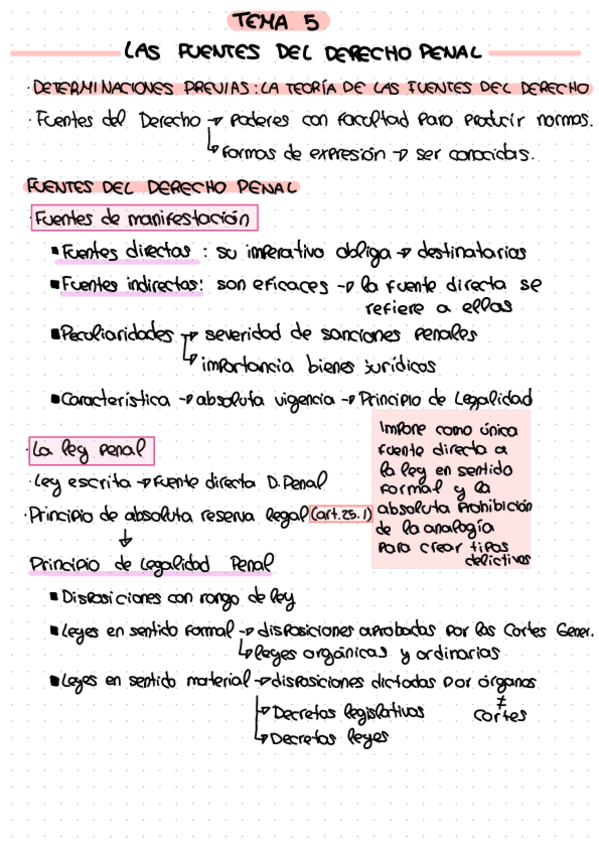 TEMA 5
LAS FUENTES DEL DERECHO PENAL
· DETERMINACIONES PREVIAS: LA TEORÍA DE LAS FUENTES DEL DERECHO
· Fuentes del Derecho → poderes con facultad para producir normas.
↳ formas de expresión → ser conocidas.
FUENTES DEL DERECHO PENAL
· Fuentes de manifestación
▪ Fuentes directas : su imperativo obliga → destinatarios
▪ Fuentes indirectas: son eficaces → la fuente directa se
refiere a ellas
▪ Peculiaridades → severidad de sanciones penales
↳ importancia bienes jurídicos
▪ Característica → absoluta vigencia → Principio de Legalidad
Impone como única
fuente directa a
la ley en sentido
formal y la
absoluta prohibición
de la analogía
para crear tipos
delictivos
· La ley penal
· Ley escrita → fuente directa D. Penal
· Principio de absoluta reserva legal (art. 25.1)
↓
Principio de Legalidad Penal
▪ Disposiciones con rango de ley
▪ Leyes en sentido formal → disposiciones aprobadas por las Cortes Gener.
↳ leyes orgánicas y ordinarias
▪ Leyes en sentido material → disposiciones dictadas por órganos
≠
cortes
→ Decretos legislativos
↳ Decretos leyes